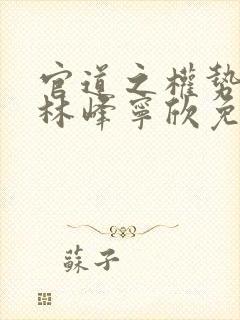 官道之權勢
林峰寧欣免
蘇子